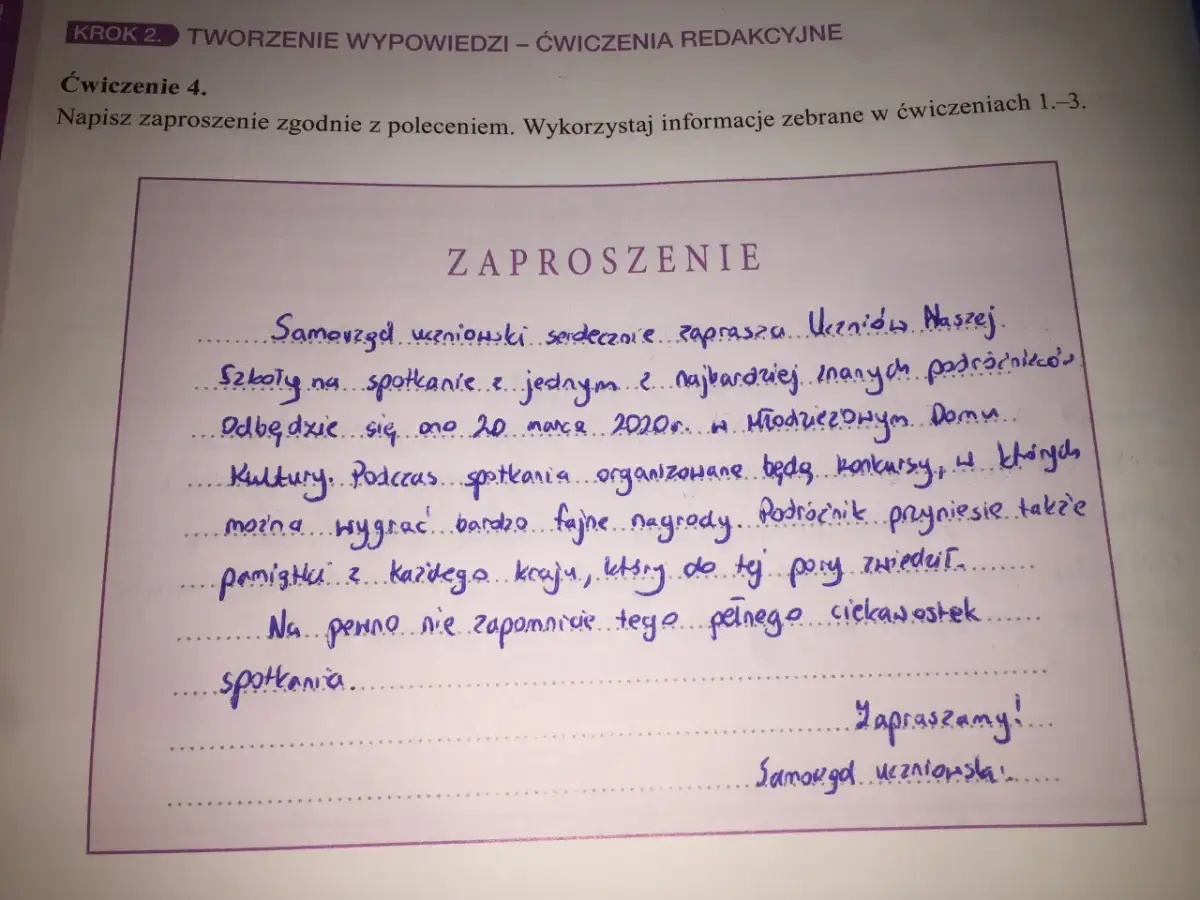 KROK 2. TWORZENIE WYPOWIEDZI – ĆWICZENIA REDAKCYJNE
Ćwiczenie 4.
Napisz zaproszenie zgodnie z poleceniem. Wykorzystaj informacje zebrane w ćwiczeniach 1.–3.
ZAPROSZENIE
Samorząd uczniowski serdecznie zaprasza Uczniów Naszej
Szkoły na spotkanie z jednym z najbardziej znanych podróżników
Odbędzie się ono 20 marca 2020r. w Młodzieżowym Domu
Kultury. Podczas spotkania organizowane będą konkursy, w których
można wygrać bardzo fajne nagrody. Podróżnik przyniesie także
pamiątki z każdego kraju, który do tej pory zwiedził.
Na pewno nie zapomnicie tego pełnego ciekawostek
spotkania.
Zapraszamy!
Samorząd uczniowski.